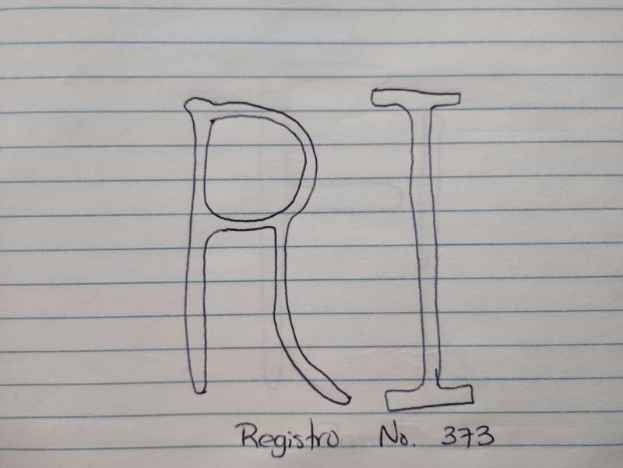 RI
Registro No. 373